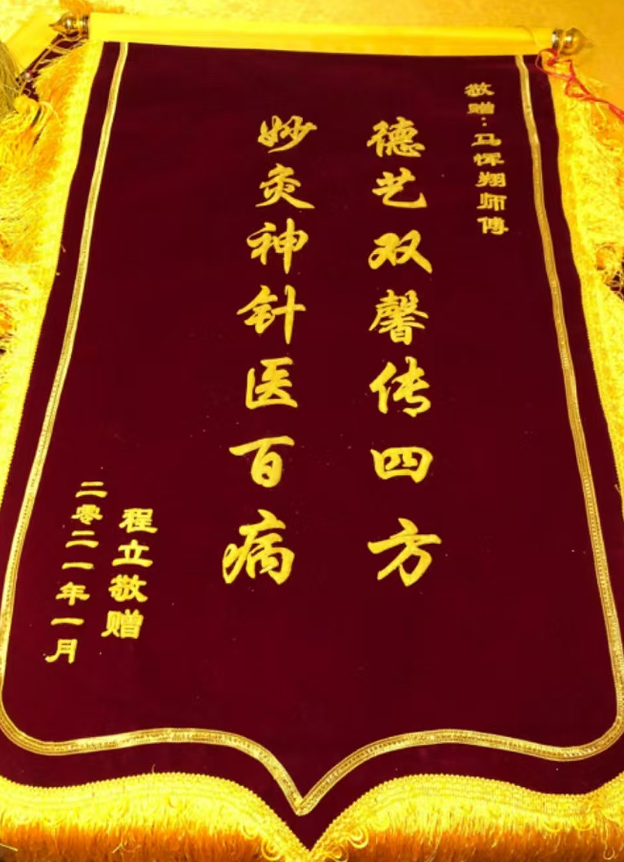 敬赠：马恽翔师傅
德艺双馨传四方
妙灸神针医百病
程立敬赠
二零二一年一月